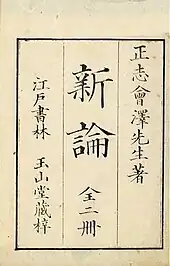 正志會澤先生著
新論 全二冊
江戸書林 玉山堂藏梓